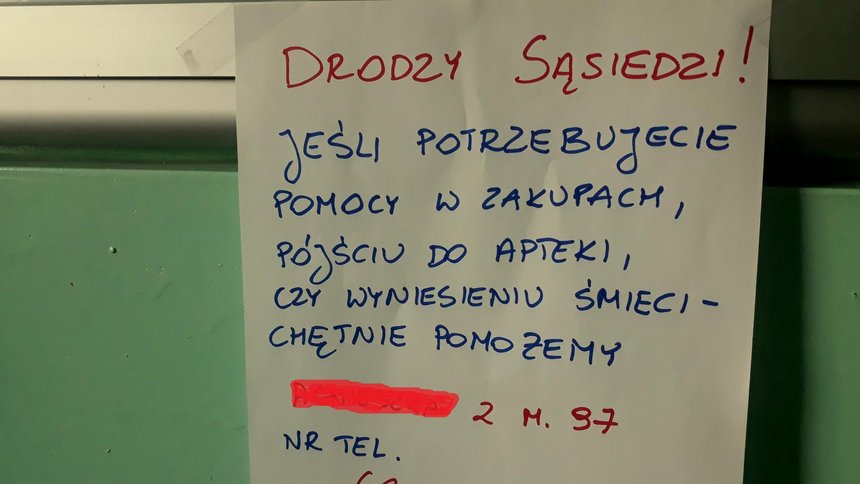 DRODZY SĄSIEDZI!
JEŚLI POTRZEBUJECIE
POMOCY W ZAKUPACH,
PÓJŚCIU DO APTEKI,
CZY WYNIESIENIU ŚMIECI -
CHĘTNIE POMOŻEMY
2 M. 97
NR TEL.